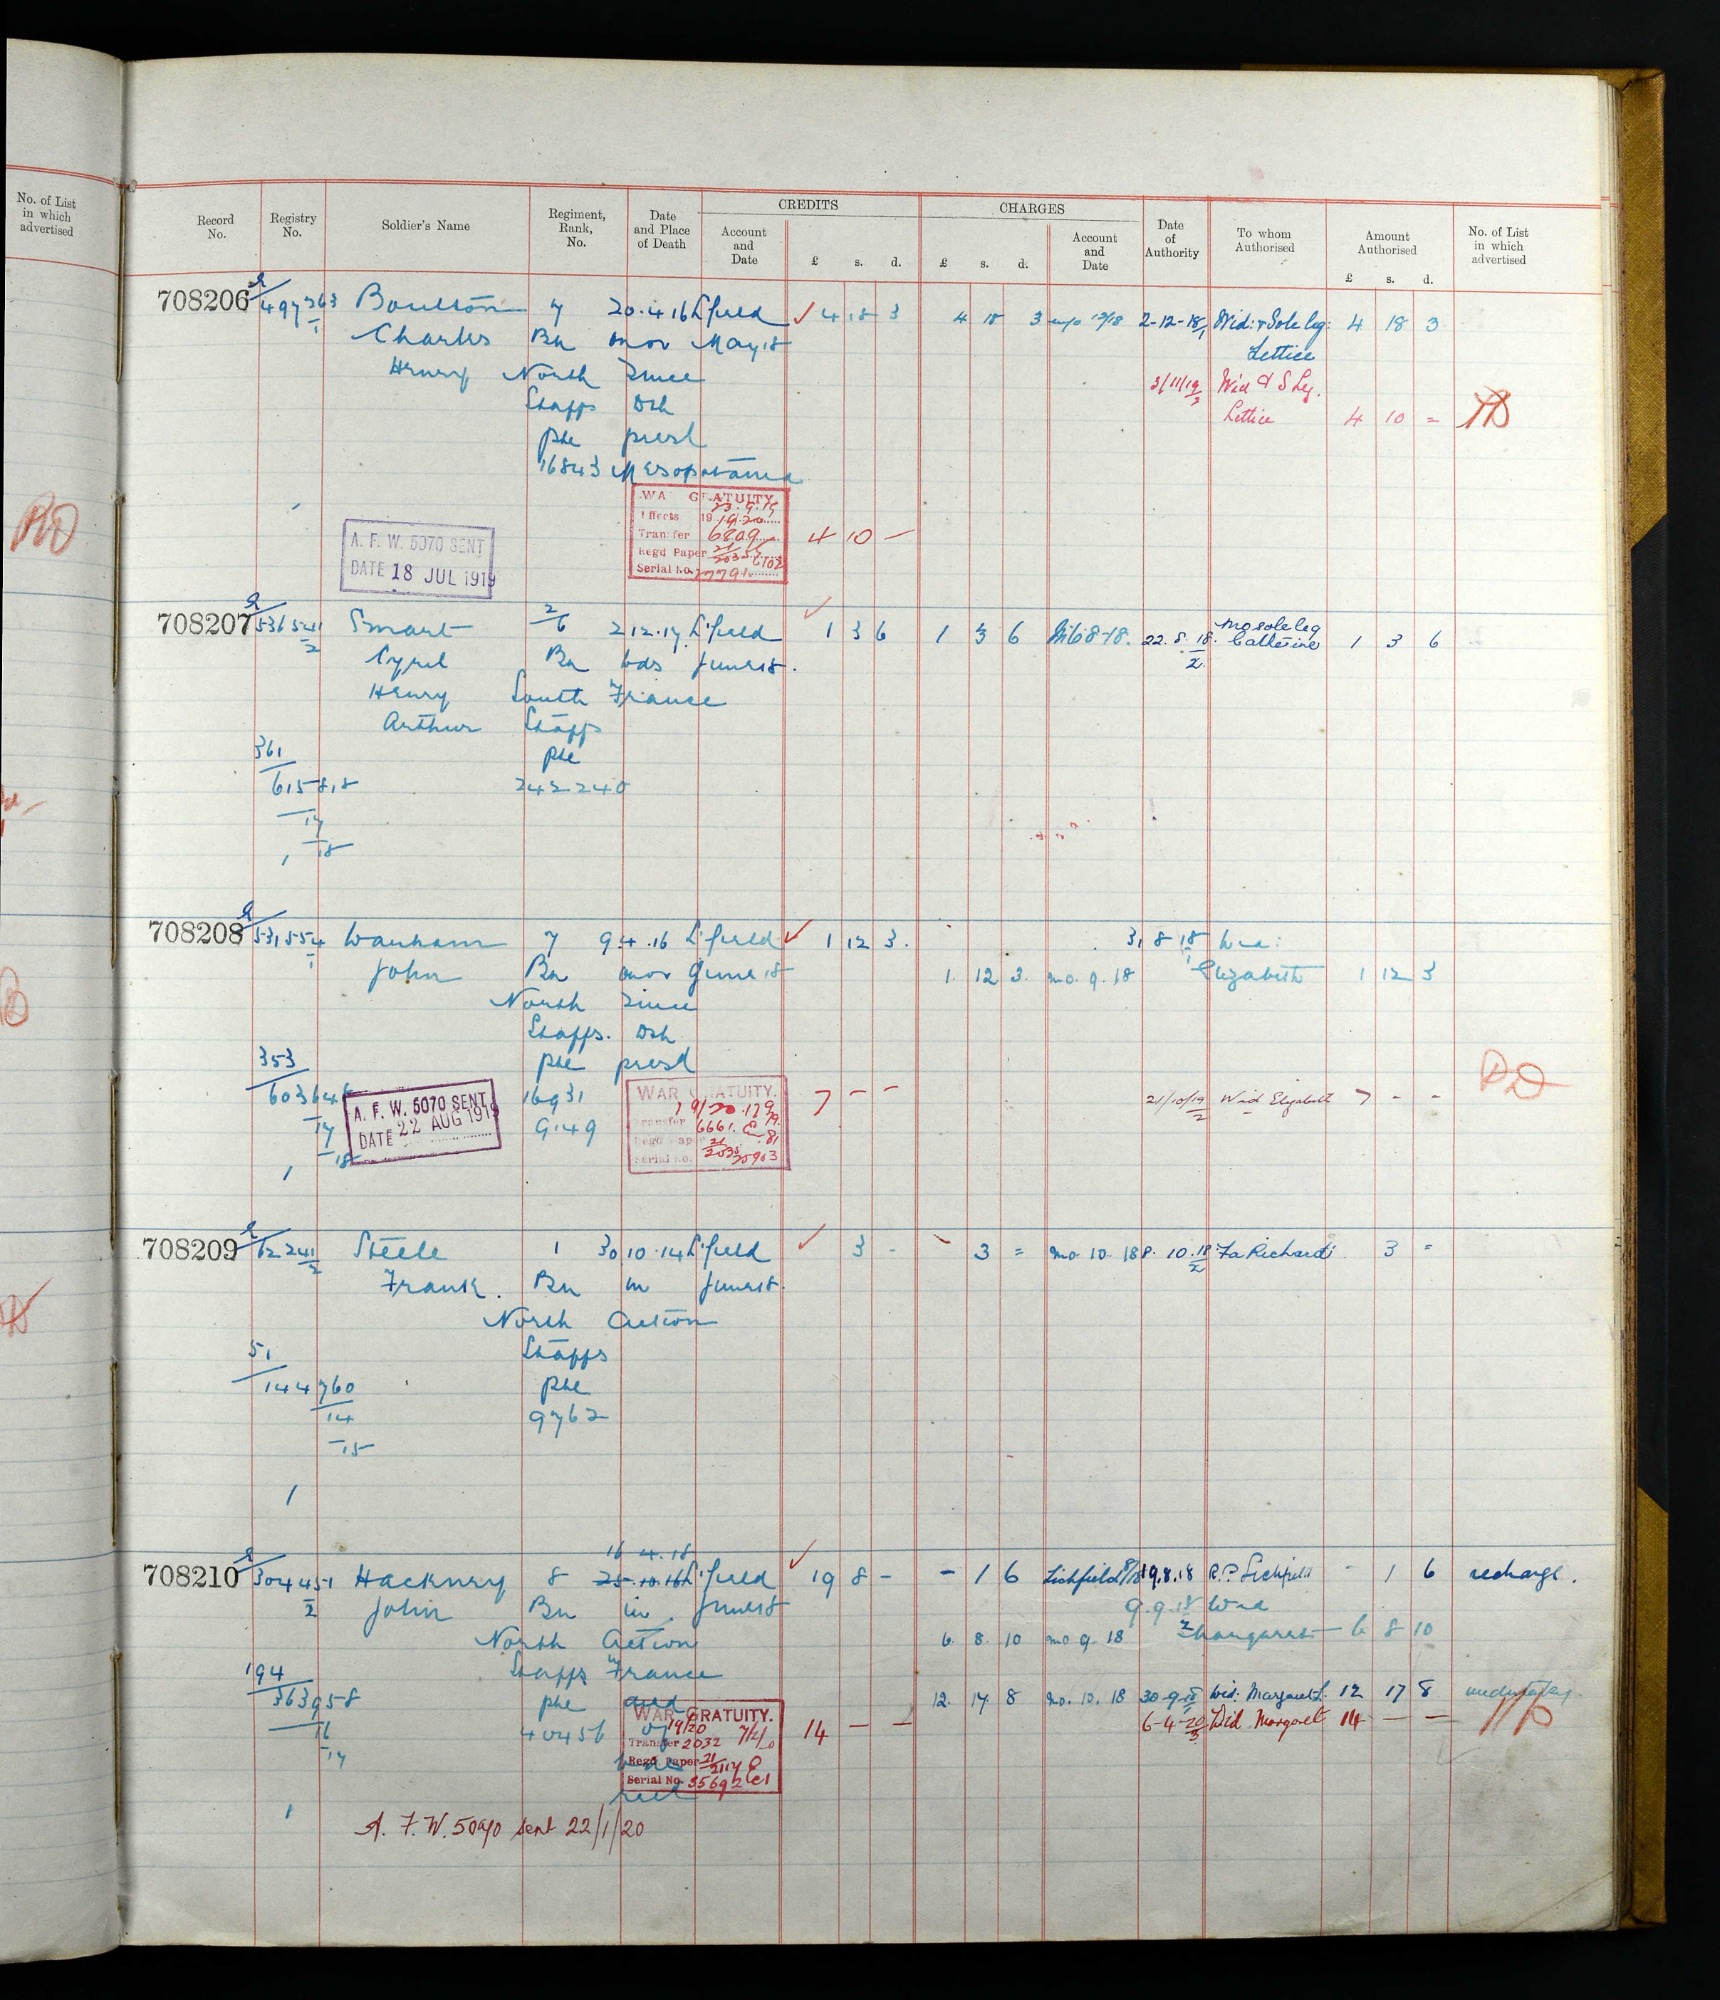 No. of List
in which
advertised
Record
No.
Registry
No.
Soldier's Name
Regiment,
Rank,
No.
Date
and Place
of Death
CREDITS
Account
and
Date
£ s. d.
CHARGES
£ s. d.
Account
and
Date
Date
of
Authority
To whom
Authorised
Amount
Authorised
£ s. d.
No. of List
in which
advertised
708206 Boulton 7 20.4.16 L'field 4 18 3 4 18 3 2-12-18 Wid: & Sole leg: 4 18 3
Charles Bn or May 18 Lettice
Henry North Since 3/11/19 Wid & S Leg.
Staffs Dth Lettice 4 10 =
Pte presd
16843 Mesopotamia
WAR GRATUITY.
Effects 19/20
Transfer 6209 4 10 -
Regd Paper
Serial No.
A. F. W. 5070 SENT
DATE 18 JUL 1919
708207 Smart 2/6 2.12.17 L'field 1 3 6 1 3 6 22.8.18 Mo sole leg 1 3 6
Cyril Bn June 18. Catherine
Henry South France
Arthur Staffs
361 Pte
615818 242240
17
18
708208 John 7 9.4.16 L'field 1 12 3. 31 8 18 Wid:
Bn or June 18 1. 12 3. mo. 9. 18 Elizabeth 1 12 3
North Since
Staffs. Dth
353 Pte presd
60364 16931
17 9149
18
A. F. W. 5070 SENT
DATE 22 AUG 1919
WAR GRATUITY.
Transfer 6661 7 - - 21/10/19 Wid Elizabeth 7 - -
Regd Paper
Serial No.
708209 Steele 1 30 10.14 L'field 3 - 3 = mo. 10. 18 8. 10. 18 Fa Richard 3 =
Frank. Bn in June 18.
North Action
51 Staffs
144760 Pte
14 9762
15
16 4.18
708210 304451 Hackney 8 25.10.16 L'field 19 8 - - 1 6 Lichfield 8/18 19.8.18 R.P. Lichfield - 1 6 recharge.
John Bn in June 18 9.9.18 Wid
North Action 6. 8. 10 mo 9. 18 Margaret 6 8 10
194 Staffs France
363958 Pte 12. 17 8 mo. 10. 18 30-9-18 Wid: Margaret L. 12 17 8
16 40456 14 - - 6-4-20 Wid Margaret 14 - -
17
WAR GRATUITY.
19/20
Transfer 2032
Regd Paper
Serial No.
A. F. W. 5070 sent 22/1/20